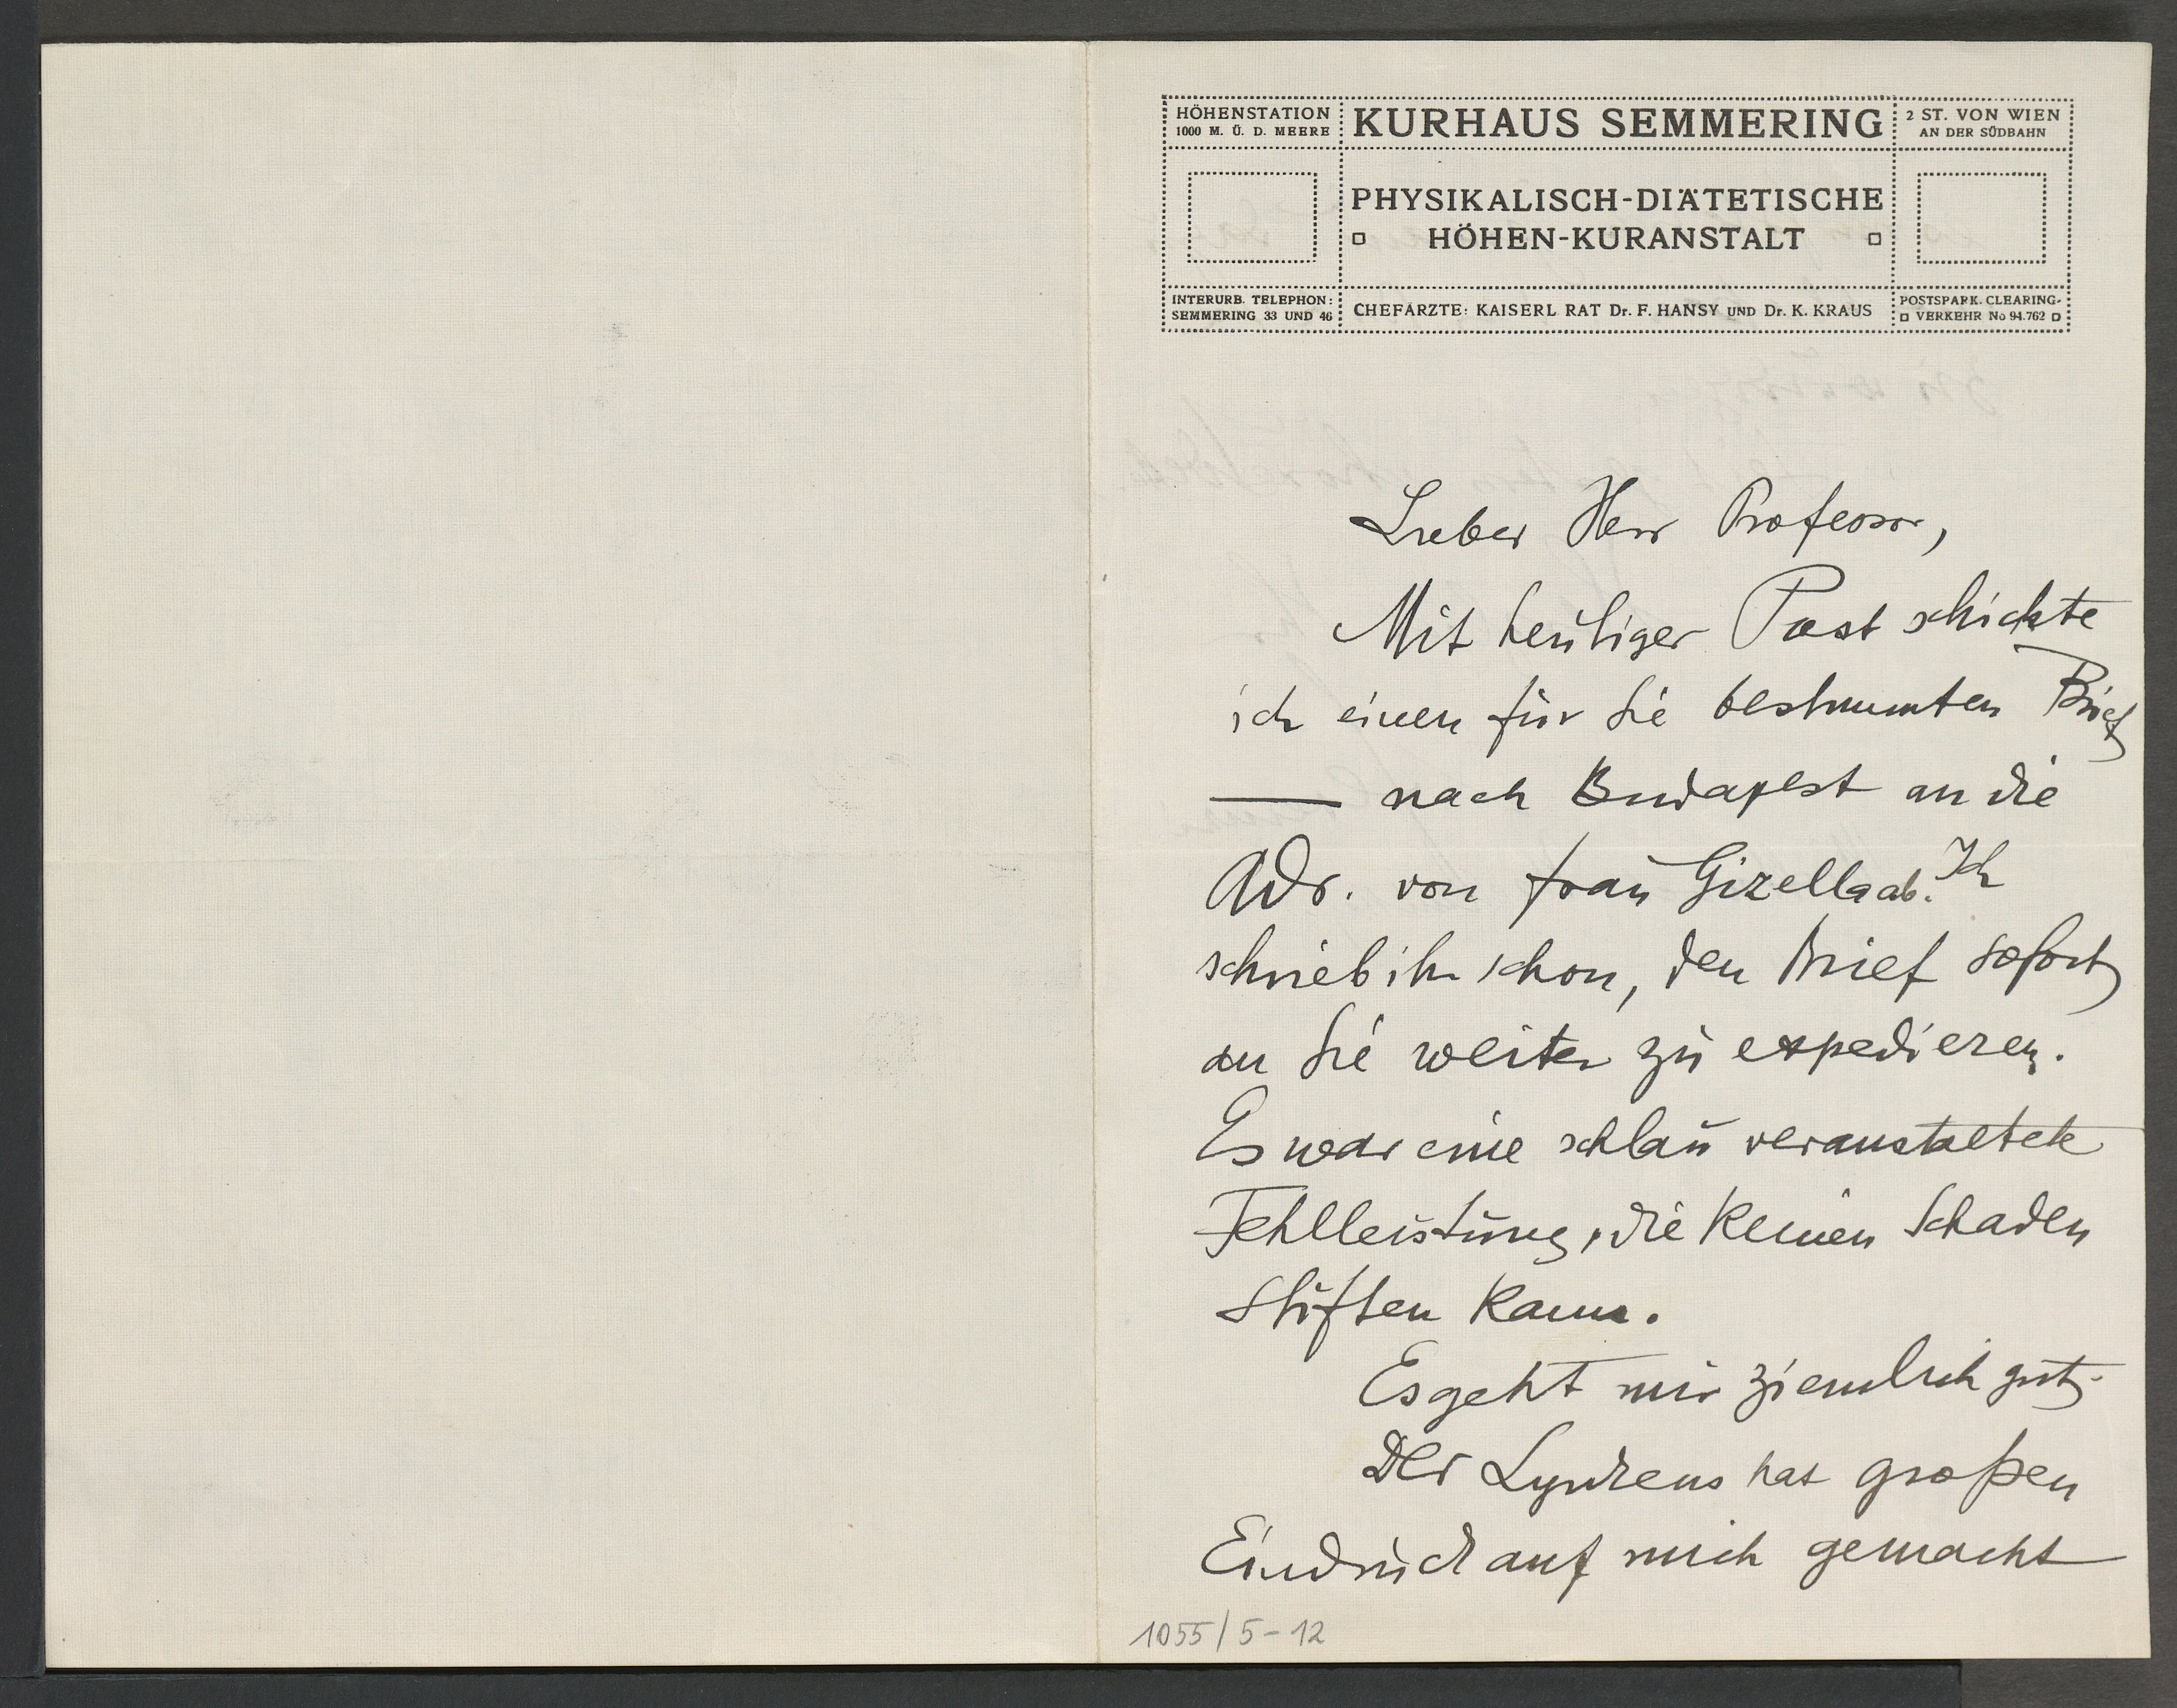 HÖHENSTATION
1000 M. Ü. D. MEERE
KURHAUS SEMMERING
2 ST. VON WIEN
AN DER SÜDBAHN
PHYSIKALISCH-DIÄTETISCHE
HÖHEN-KURANSTALT
INTERURB. TELEPHON:
SEMMERING 33 UND 46
CHEFÄRZTE: KAISERL RAT Dr. F. HANSY UND Dr. K. KRAUS
POSTSPARK. CLEARING-
VERKEHR No 94.762
Lieber Herr Professor,
Mit heutiger Post schickte
ich einen für Sie bestimmten Brief
— nach Budapest an die
Adr. von Frau Gizella ab. Ich
schrieb ihr schon, den Brief sofort
an Sie weiter zu expedieren.
Es war eine schlau veranstaltete
Fehlleistung, die keinen Schaden
stiften kann.
Es geht mir ziemlich gut.
Der Lynkeus hat großen
Eindruck auf mich gemacht
1055/5-12